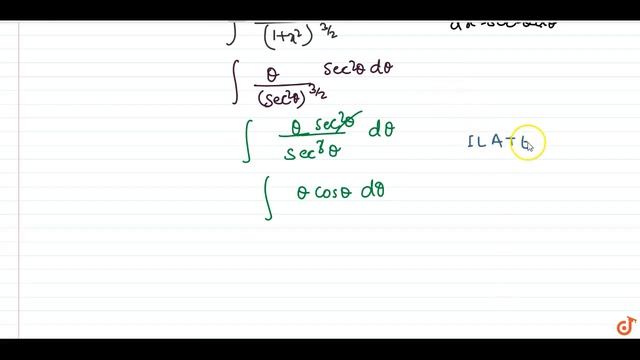 ∫ (1+x²)^3/2 dx = sec²θ dθ
∫ θ/(sec²θ)^3/2 sec²θ dθ
∫ θ sec²θ/sec³θ dθ
I L A T E
∫ θ cosθ dθ